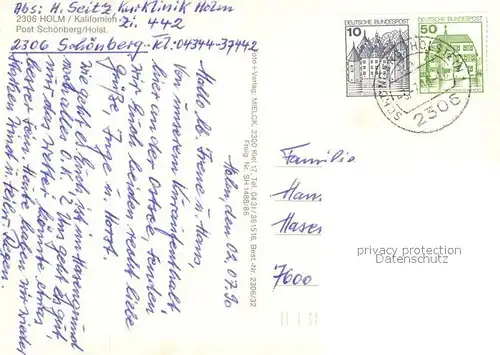 Abs: H. Seitz Kurklinik Holm
2306 HOLM / Kalifornien Zi. 442
Post Schönberg/Holst.
2306 Schönberg - Tel: 04344-37442
Holm, den 02.07.90
Hallo lb. Irene u. Hans,
Von unserem Kuraufenthalt,
hier an der Ostsee, senden
wir Euch beiden recht liebe
Grüße, Inge u. Horst.
Wie geht es Euch, ist im Hause
noch alles O.K.? Uns geht es gut,
nur das Wetter könnte etwas
besser sein. Heute haben wir wieder
Wind u. Regen.
Foto+Verlag: MIELCK, 2300 Kiel 17, Tel. 0431/361516, Best.-Nr. 2306/32
Freig. Nr. SH 1488/86
10 DEUTSCHE BUNDESPOST
50 DEUTSCHE BUNDESPOST
2306
Familie
Hans
7600
privacy protection
Datenschutz